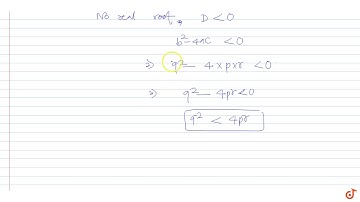 No real roof, D < 0
b² - 4ac < 0
⇒) q² - 4 × p × r < 0
⇒) q² - 4pr < 0
q² < 4pr